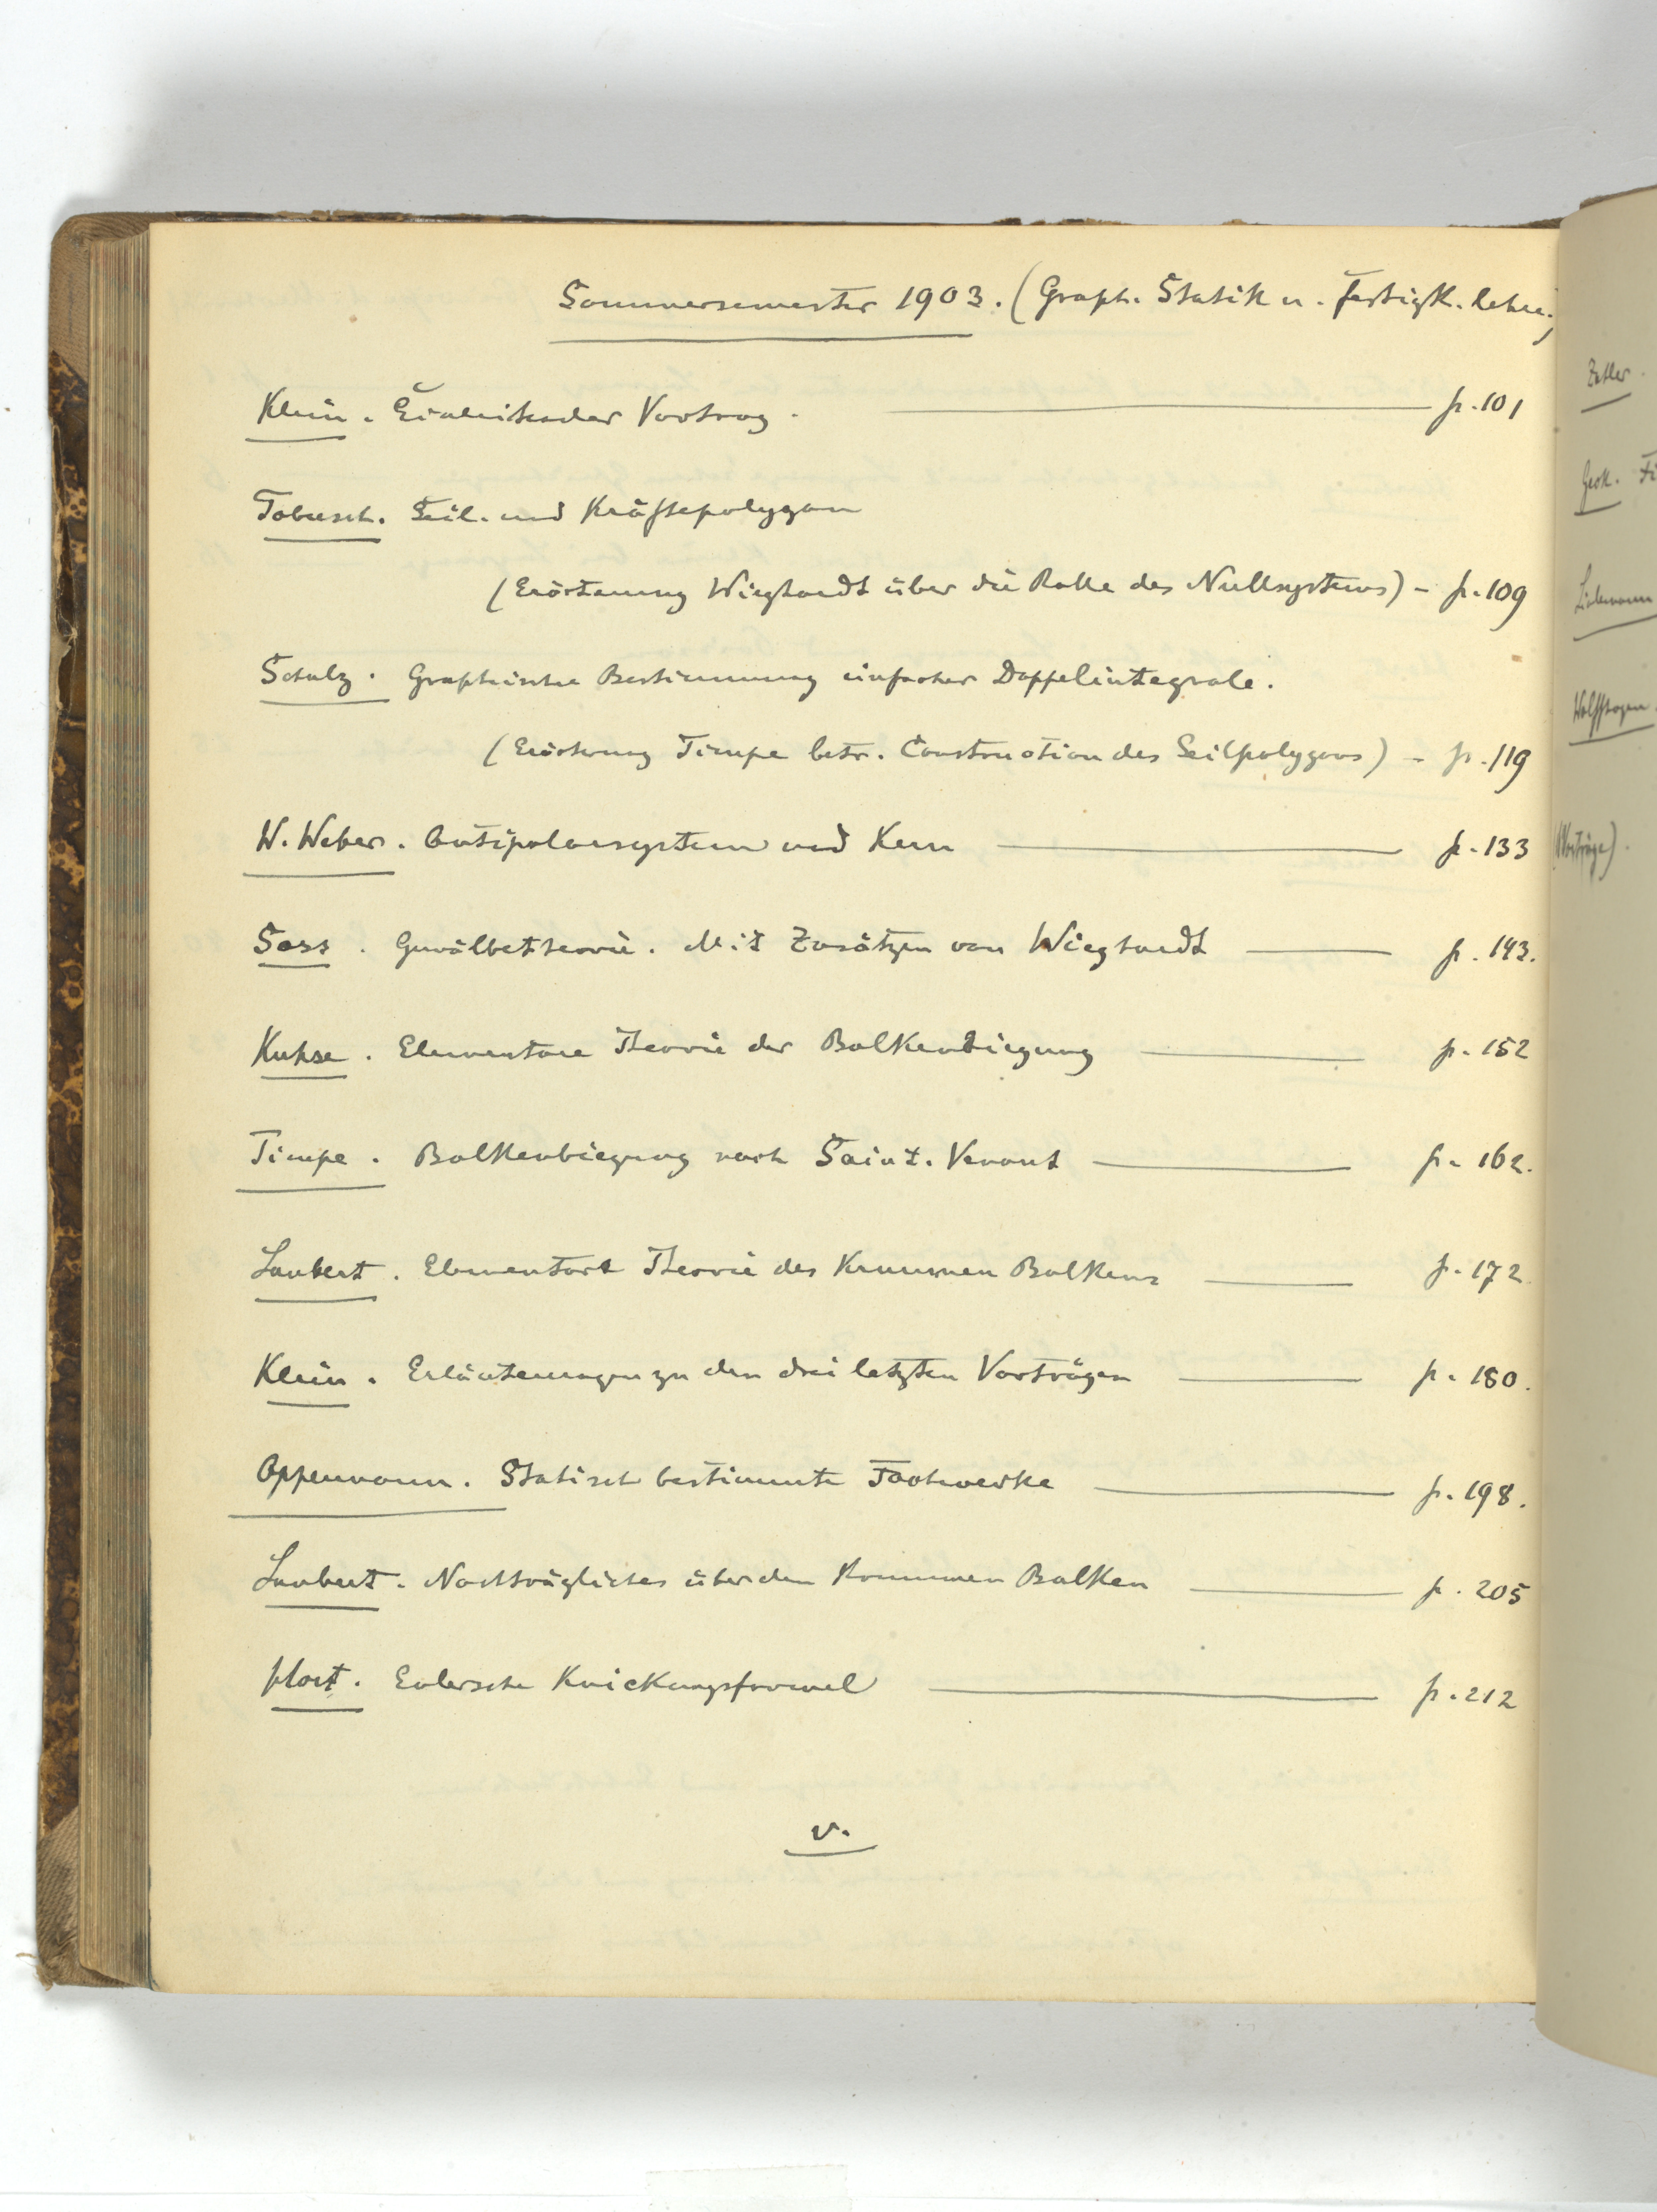 Sommersemester 1903. (Graph. Statik u. Festigk. lehre.)
Klein. Einleitender Vortrag. p. 101
Tobusch. Seil- und Kräftepolygon
(Erörterung Wieghardt über die Rolle des Nullsystems) - p. 109
Schulz. Graphische Bestimmung einfacher Doppelintegrale.
(Erörterung Timpe betr. Construction des Seilpolygons) - p. 119
W. Weber. Antipolarsystem und Kern p. 133
Sass. Gewölbetheorie. Mit Zusätzen von Wieghardt p. 143.
Kuhse. Elementare Theorie der Balkenbiegung p. 152
Timpe. Balkenbiegung nach Saint-Venant p. 162.
Laubert. Elementare Theorie des krummen Balkens p. 172
Klein. Erläuterungen zu den drei letzten Vorträgen p. 180.
Oppermann. Statisch bestimmte Fachwerke p. 198.
Laubert. Nachträgliches über den krummen Balken p. 205
Hort. Eulersche Knickungsformel p. 212
V.
Wolffhagen.
(Vorträge).